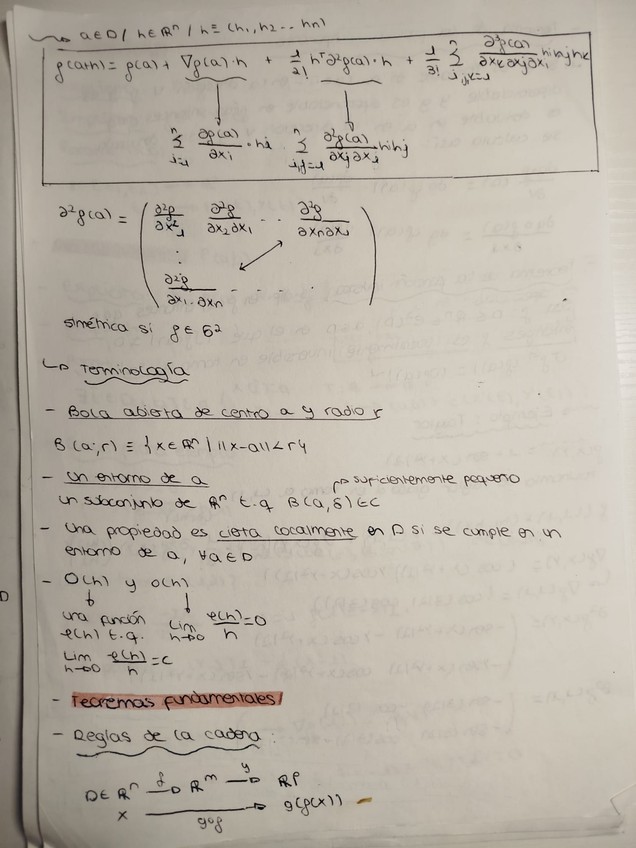 a∈D / h∈ℝⁿ / h ≡ (h₁, h₂ ... hn)
f(a+h) = f(a) + ∇f(a)·h + 1/2! hᵀ ∂²f(a)·h + 1/3! Σⁿ i,j,k=1 ∂³f(a)/∂xk∂xj∂xi hi hj hk
Σⁿ i=1 ∂f(a)/∂xi · hi    Σⁿ i,j=1 ∂²f(a)/∂xj∂xi hi hj
∂²f(a) = ( ∂²f/∂x²₁  ∂²f/∂x₂∂x₁ . . ∂²f/∂xn∂x₁
:
∂²f/∂x₁·∂xn - - - . . )
simétrica si f ∈ C²
↳ Terminología
- Bola abierta de centro a y radio r
B(a;r) ≡ {x∈ℝⁿ | ||x-a|| < r}
- Un entorno de a → suficientemente pequeño
un subconjunto de ℝⁿ t.q B(a,δ) ∈ C
- Una propiedad es cierta localmente en D si se cumple en un
entorno de a, ∀a∈D
- O(h) y o(h)
una función lim h→0 φ(h)/h = 0
φ(h) t.q.
lim h→0 φ(h)/h = C
- Teoremas fundamentales
- Reglas de la cadena:
D∈ℝⁿ f→ ℝᵐ g→ ℝᵖ
x g∘f→ g(f(x))